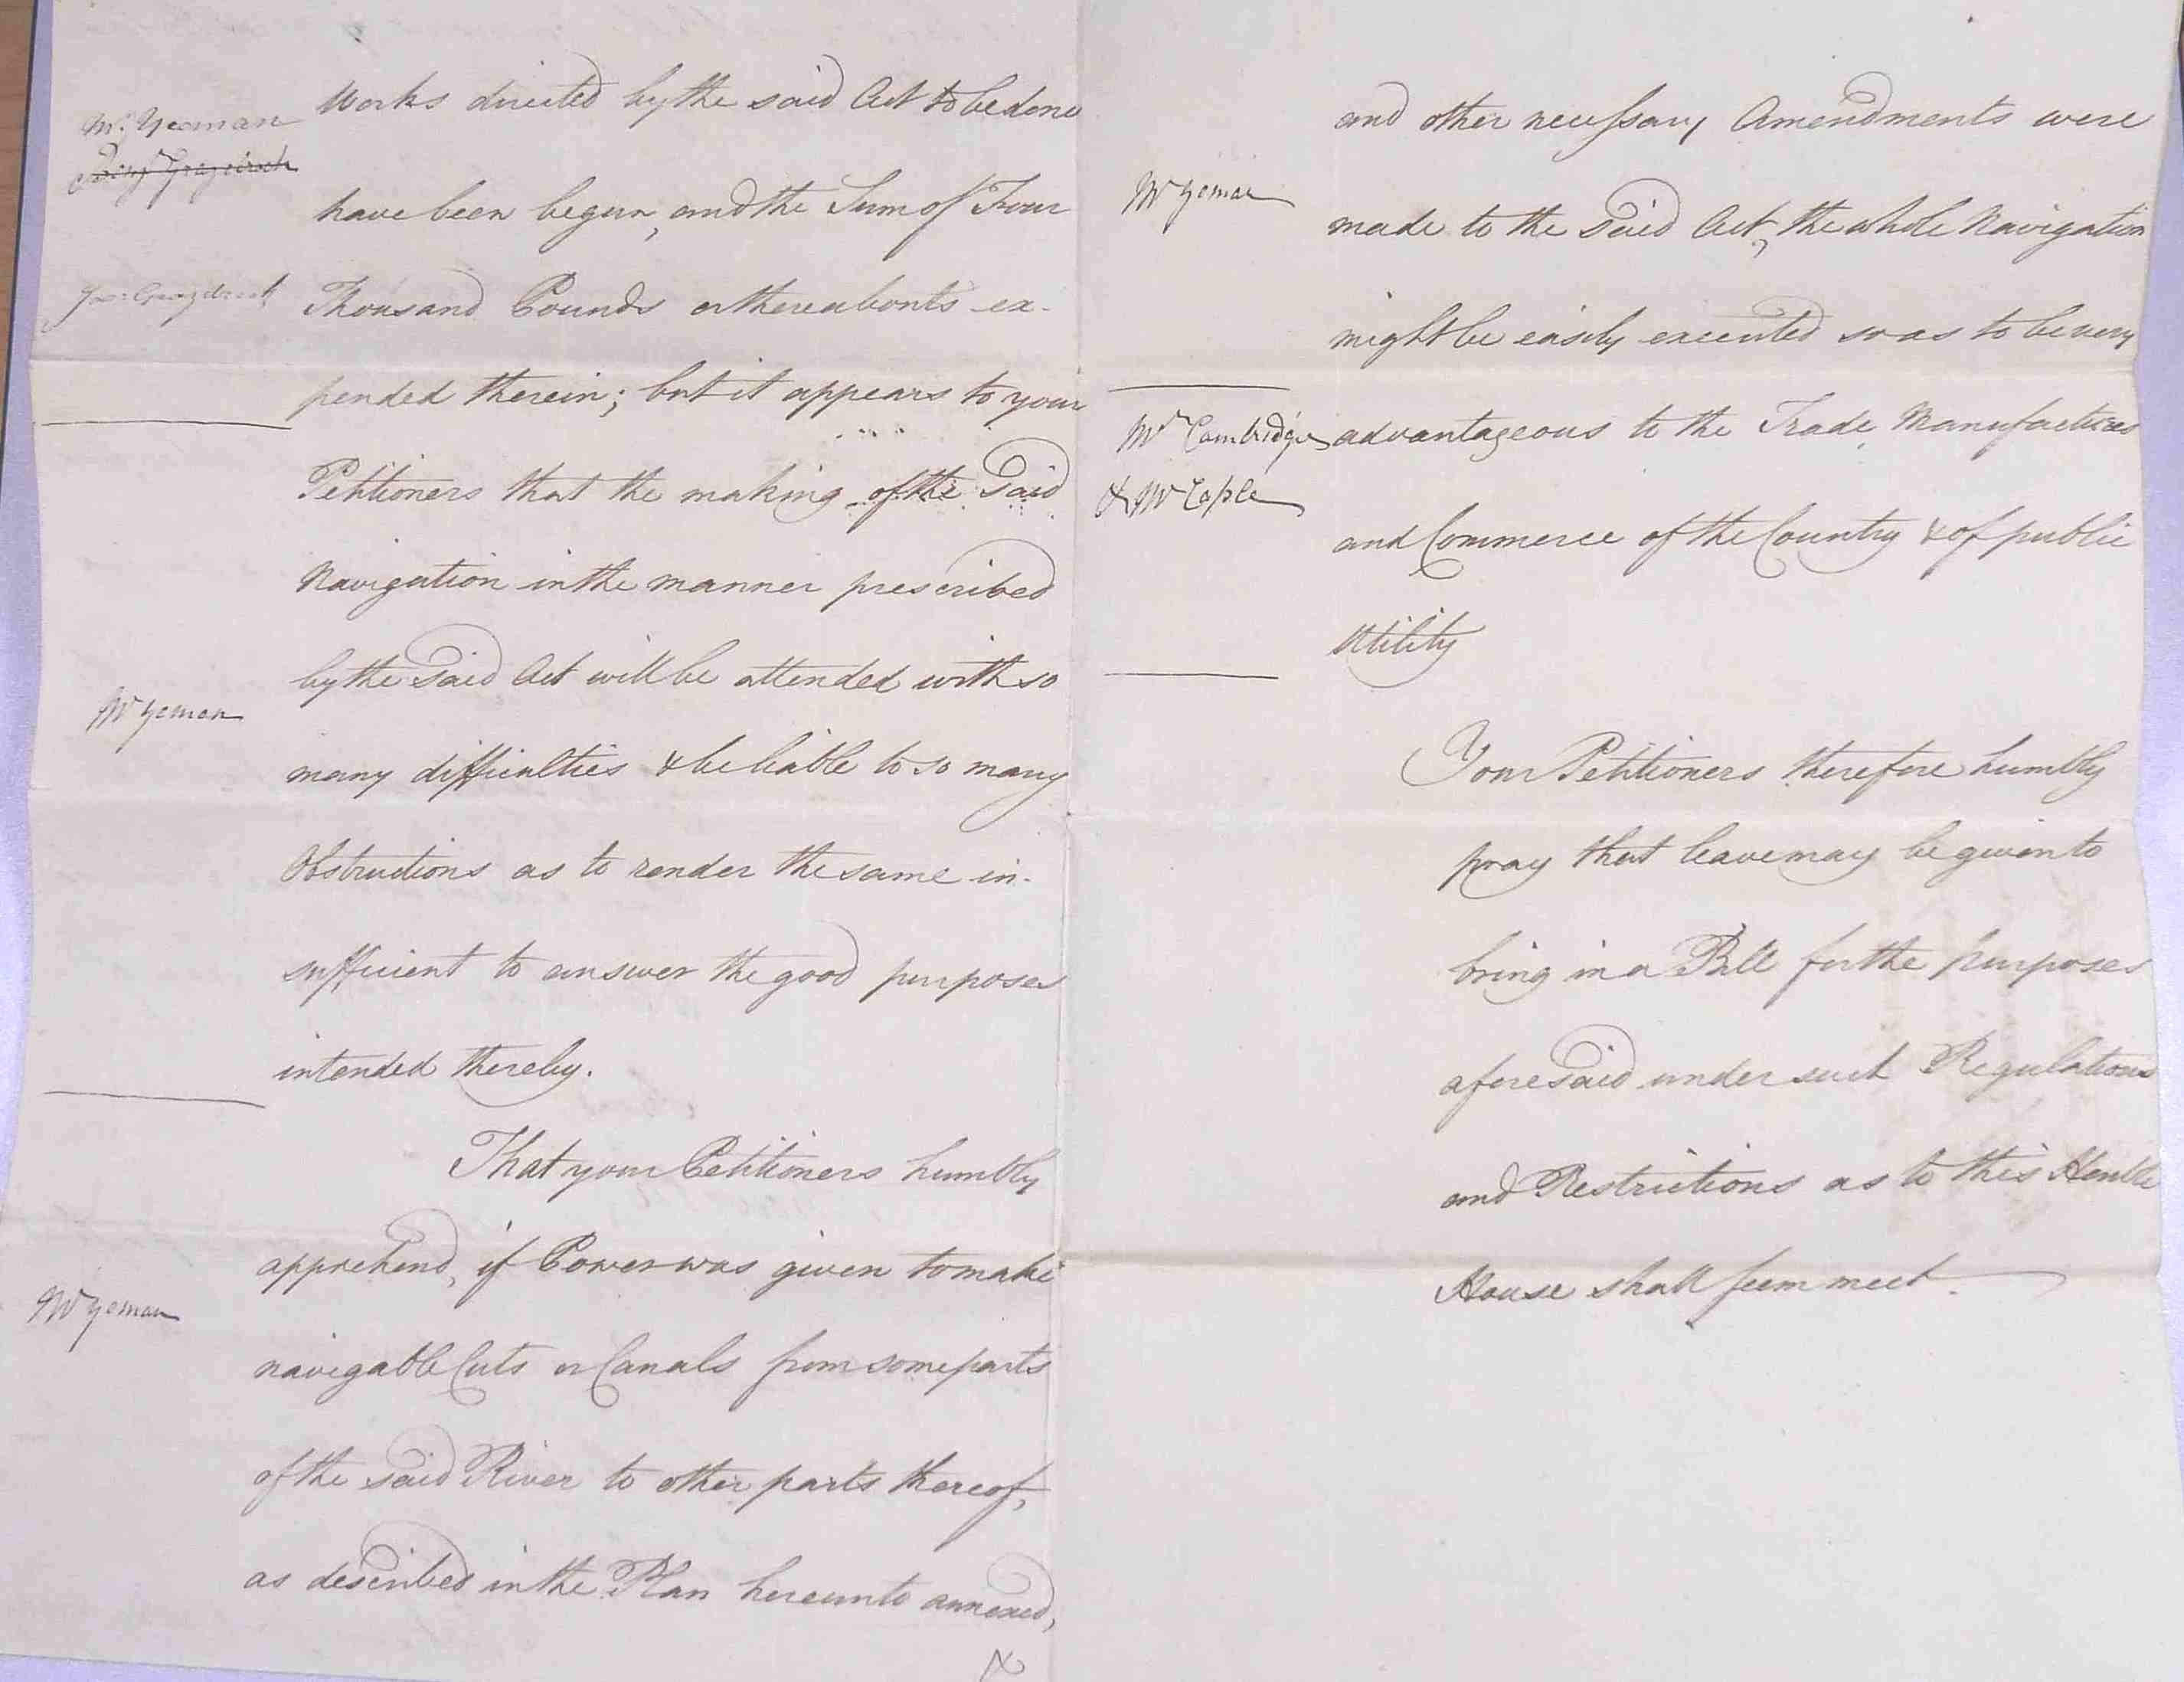 Works directed by the said Act to be done
Mr. Yeoman
have been begun, and the Sum of Four
Thousand Pounds or thereabouts ex-
pended therein; but it appears to your
Petitioners that the making of the Said
Navigation in the manner prescribed
by the Said Act will be attended with so
Mr Yeman
many difficulties & be liable to so many
Obstructions as to render the same in-
sufficient to answer the good purposes
intended thereby.
That your Petitioners humbly
apprehend, if Power was given to make
Mr Yeman
navigable Cuts or Canals from some parts
of the said River to other parts thereof,
as described in the Plan hereunto annexed,
and other necessary Amendments were
Mr Yeman
made to the Said Act, the whole Navigation
might be easily executed so as to be very
Mr Cambridge advantageous to the Trade, Manufactures
& Mr Caple
and Commerce of the Country & of public
Utility
Your Petitioners therefore humbly
pray that leave may be given to
bring in a Bill for the purposes
aforesaid under such Regulations
and Restrictions as to this Honble
House shall seem meet.